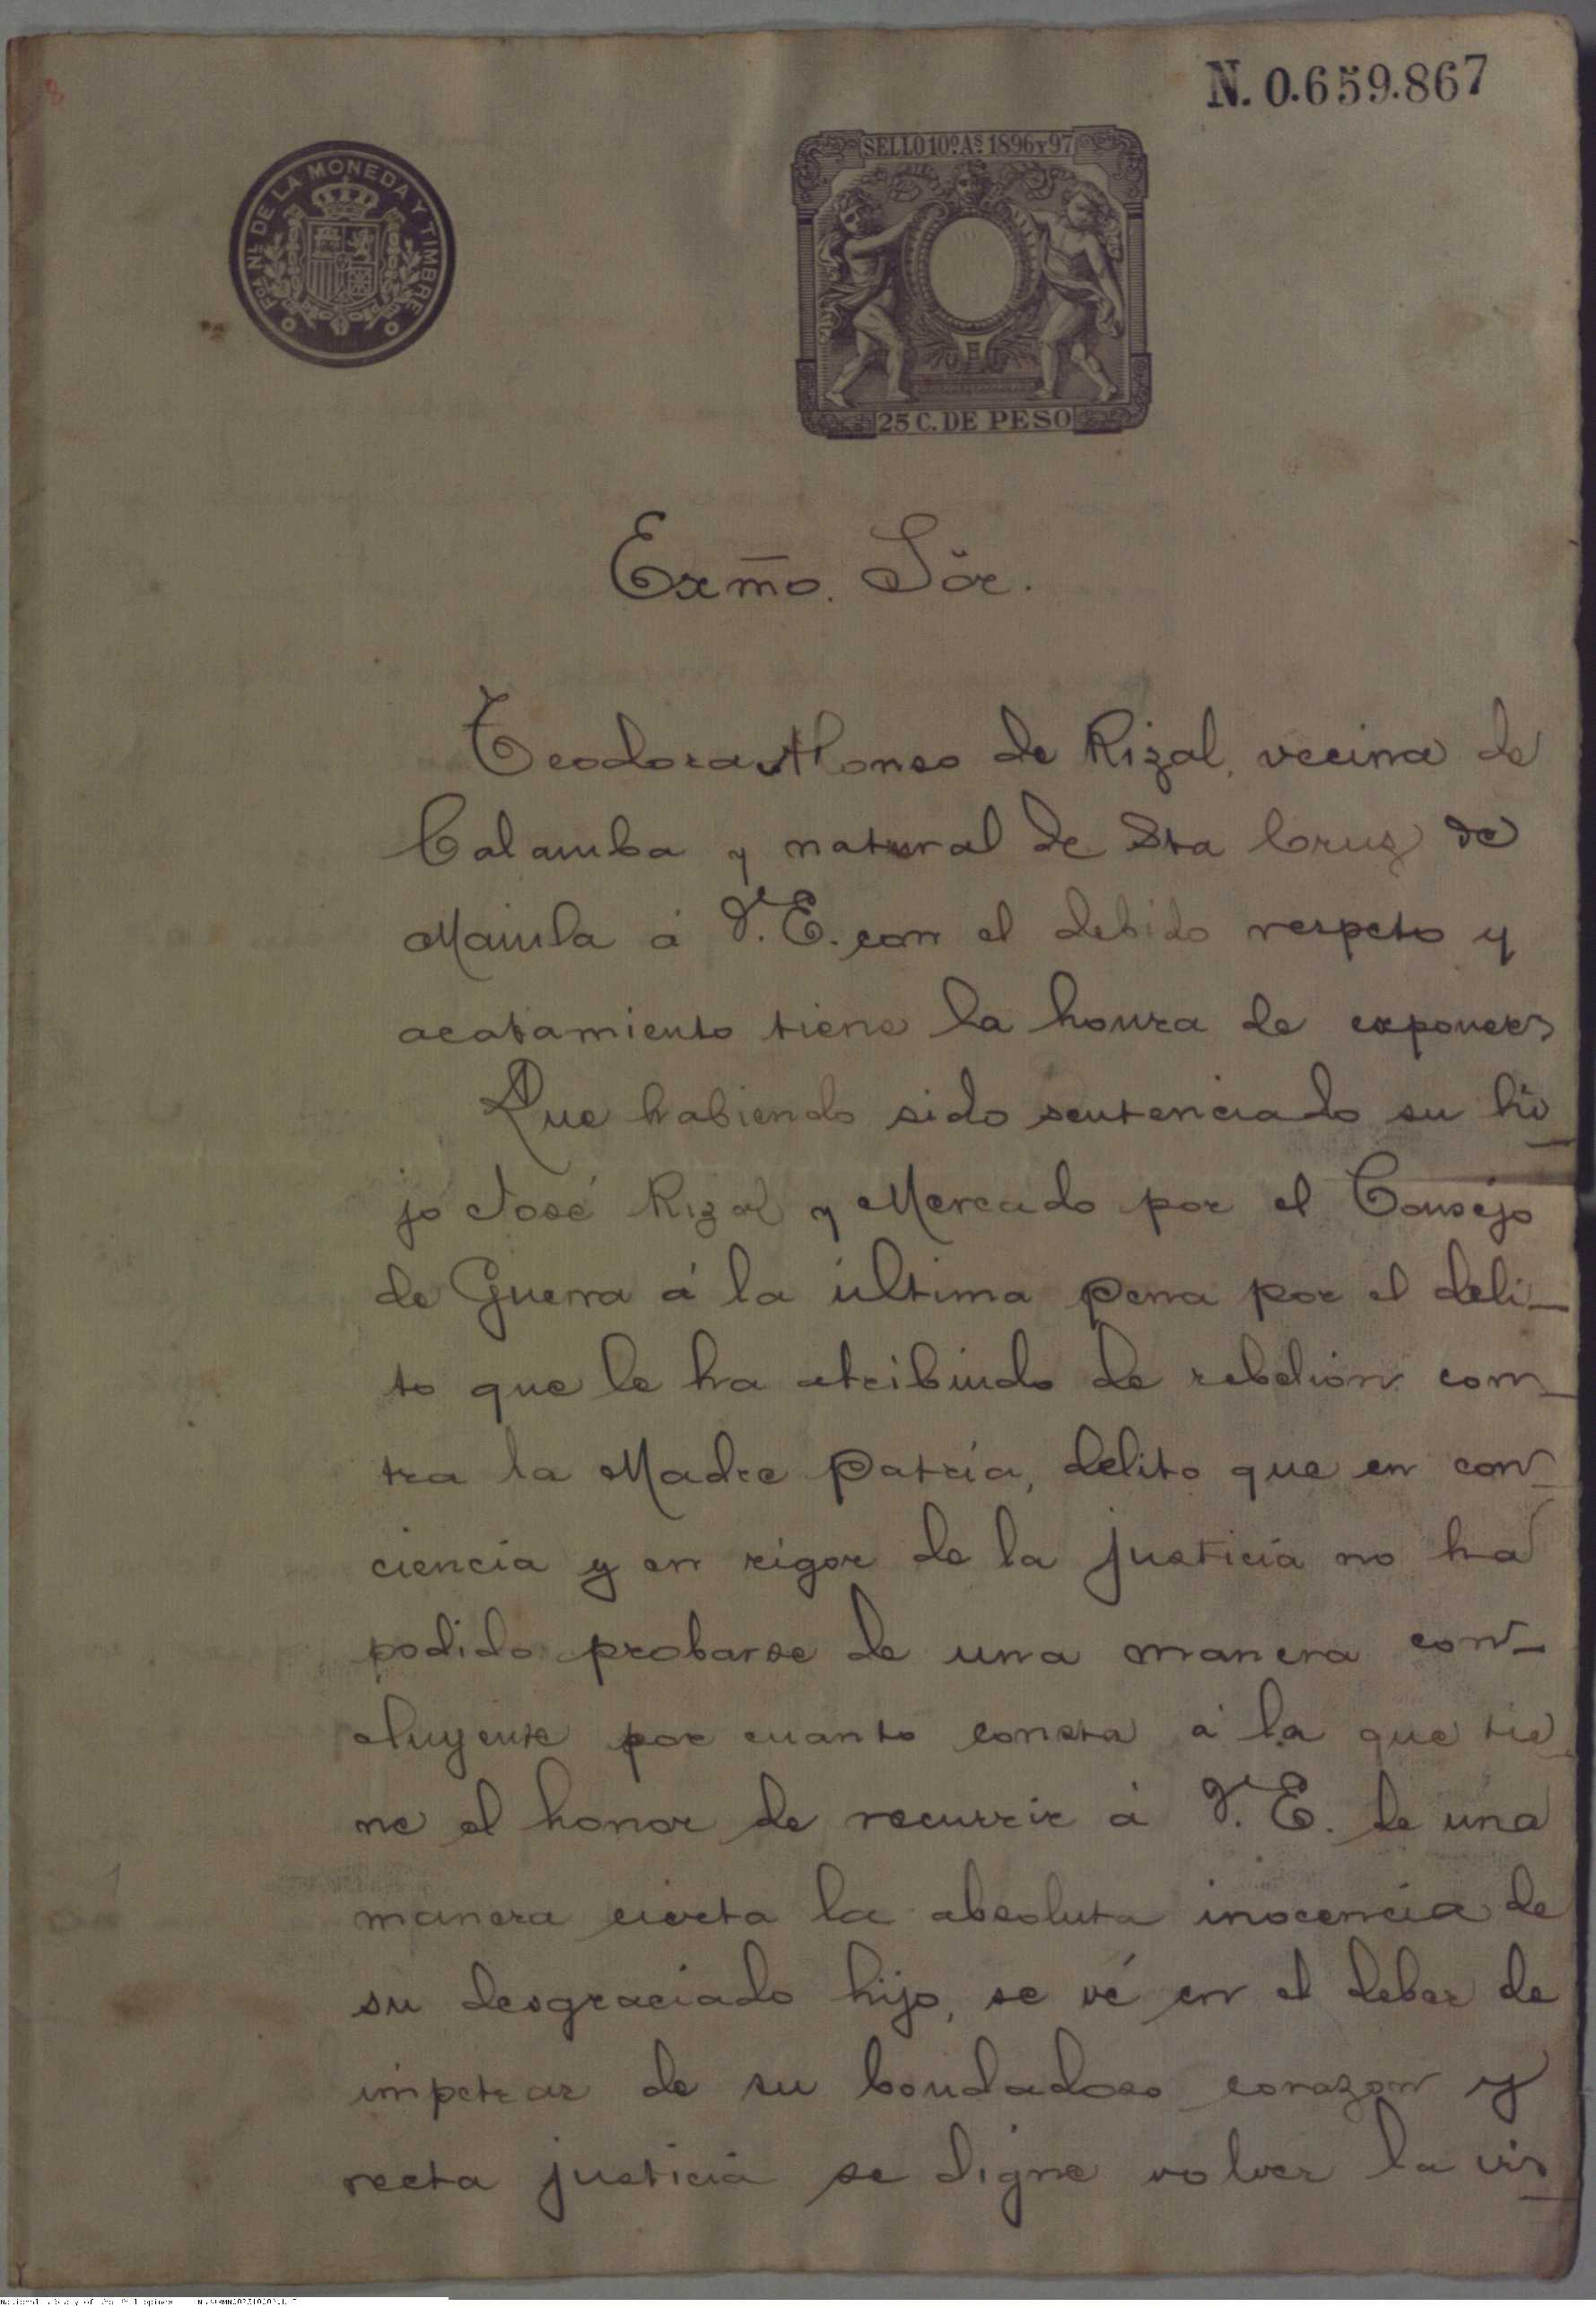 8
N. 0.659.867
FCA. NL. DE LA MONEDA Y TIMBRE
SELLO 10º. AS. 1896 Y 97
25 C. DE PESO
Exmo. Sör.
Teodora Alonso de Rizal, vecina de
Calamba y natural de Sta Cruz de
Manila á V. E. con el debido respeto y
acatamiento tiene la honra de exponer:
Que habiendo sido sentenciado su hi
jo José Rizal y Mercado por el Consejo
de Guerra á la última pena por el deli-
to que le ha atribuido de rebelion con-
tra la Madre Patria, delito que en con-
ciencia y en rigor de la justicia no ha
podido probarse de una manera con-
cluyente por cuanto consta á la que tie-
ne el honor de recurrir á V. E. de una
manera cierta la absoluta inocencia de
su desgraciado hijo, se vé en el deber de
impetrar de su bondadoso corazon y
recta justicia se digne volver la vis-
National Library of the Philippines